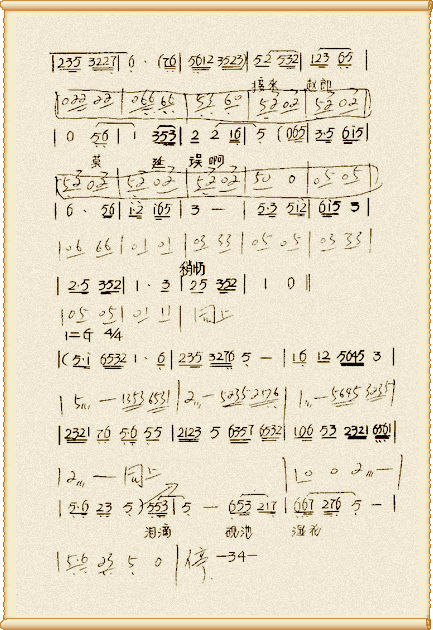 |235 3227|6 · (76|5612 3523)|52 532|123 65|
接来 赵郎
|022 22|066 66|53 60|52 02|52 02|
|0 56|1 353|2 2 16|5 (065|3·5 615|
莫 延 误啊
|52 02|52 02|52 02|50 0|05 05|
|6 · 56|1·2 165|3 —|5·3 512|615 3|
|06 66|01 01|03 33|05 05|03 33|
稍奶
|2·5 352|1 · 3|25 352|1 0‖
|05 05|01 11|同上
1=G 4/4
|(5·1 6532 1 · 6|235 3276 5 —|16 12 5645 3|
|5 — 1353 6531|2 — 5235 2176|1 — 5645 3235|
|2321 76 5·6 55|2123 5 6357 6532|106 53 2321 6561|
|2 — 同上 |1 0 0 2 —|
|5·6 23 5) 553|5 — 653 217|667 276 5 —|
泪滴 砚池 湿
|5·6 23 5 0|停
—34—